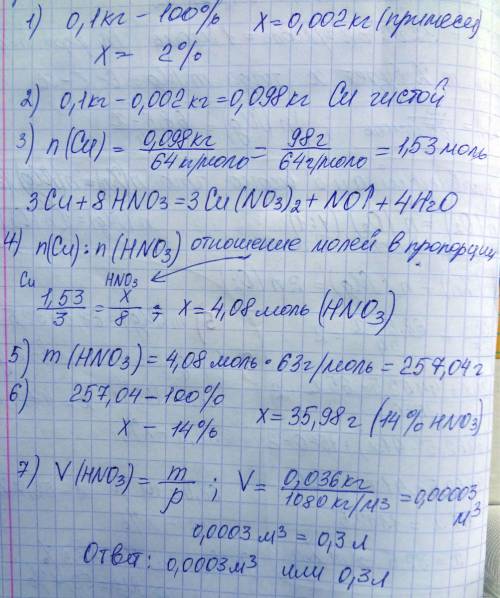 1) 0,1кг – 100% x = 0,002кг (примеси)
x = 2%
2) 0,1кг – 0,002кг = 0,098кг Cu чистой
3) n(Cu) = 0,098кг/64кг/моль = 98г/64г/моль = 1,53 моль
3Cu + 8HNO3 = 3Cu(NO3)2 + NO↑ + 4H2O
4) n(Cu) : n(HNO3) отношение молей в пропорции
Cu HNO3
1,53/3 = x/8 ; x = 4,08 моль (HNO3)
5) m(HNO3) = 4,08 моль · 63г/моль = 257,04г
6) 257,04 – 100%
x – 14% x = 35,98г (14% HNO3)
7) V(HNO3) = m/ρ ; V = 0,036кг/1080кг/м3 = 0,00003 м3
0,0003 м3 = 0,3л
Ответ: 0,0003м3 или 0,3л